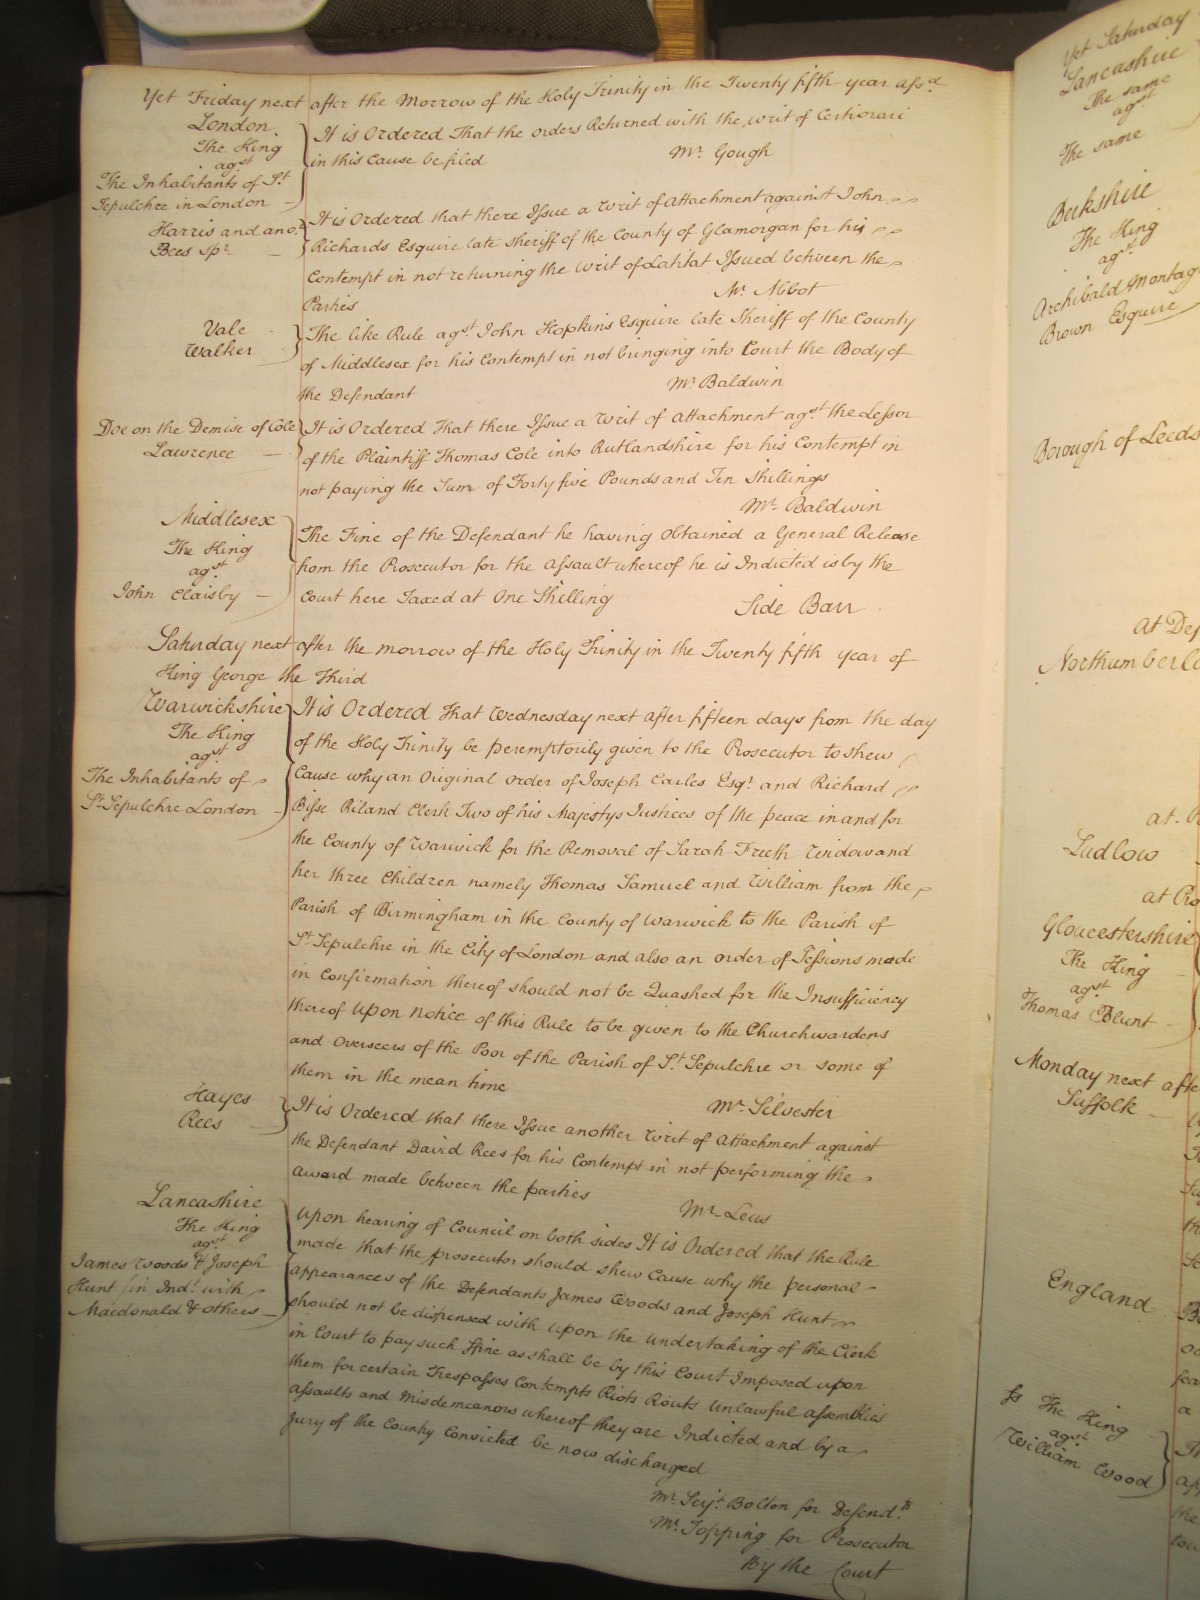 Yet Friday next after the Morrow of the Holy Trinity in the Twenty fifth year afsd.
London
The King
agst
The Inhabitants of St
Sepulchre in London
It is Ordered That the orders Returned with the writ of Certiorari
in this Cause be filed
Mr. Gough
Harris and anor.
Bees spr.
It is Ordered that there Issue a Writ of Attachment against John
Richards Esquire late Sheriff of the County of Glamorgan for his
Contempt in not returning the Writ of Latitat Issued between the
Parties
Mr. Abbot
Vale
Walker
The like Rule agst. John Hopkins Esquire late Sheriff of the County
of Middlesex for his Contempt in not bringing into Court the Body of
the Defendant
Mr. Baldwin
Doe on the Demise of Cole
Lawrence
It is Ordered that there Issue a Writ of Attachment agst the Lessor
of the Plaintiff Thomas Cole into Rutlandshire for his Contempt in
not paying the Sum of Forty five Pounds and Ten Shillings
Mr. Baldwin
Middlesex
The King
agst
John Claisby
The Fine of the Defendant he having Obtained a General Release
from the Prosecutor for the Assault whereof he is Indicted is by the
Court here Taxed at One Shilling
Side Barr
Saturday next after the morrow of the Holy Trinity in the Twenty fifth year of
King George the Third
Warwickshire
The King
agst
The Inhabitants of
St. Sepulchre London
It is Ordered That Wednesday next after fifteen days from the day
of the Holy Trinity be peremptorily given to the Prosecutor to shew
Cause why an Original order of Joseph Carles Esqr. and Richard
Bisse Riland Clerk Two of his Majestys Justices of the peace in and for
the County of Warwick for the Removal of Sarah Freeth Widow and
her three Children namely Thomas Samuel and William from the
Parish of Birmingham in the County of Warwick to the Parish of
St. Sepulchre in the City of London and also an order of Sessions made
in Confirmation thereof should not be Quashed for the Insufficiency
thereof Upon notice of this Rule to be given to the Churchwardens
and Overseers of the Poor of the Parish of St. Sepulchre or some of
them in the mean time
Mr. Silvester
Hayes
Rees
It is Ordered that there Issue another Writ of Attachment against
the Defendant David Rees for his Contempt in not performing the
award made between the parties
Mr. Lews
Lancashire
The King
agst
James Woods & Joseph
Hunt in Indt. with
Macdonald & others
Upon hearing of Council on both sides It is Ordered that the Rule
made that the prosecutor should shew Cause why the personal
appearances of the Defendants James Woods and Joseph Hunt
should not be dispensed with upon the undertaking of the Clerk
in Court to pay such ffine as shall be by this Court Imposed upon
them for certain Trespasses Contempts Riots Routs Unlawful Assemblies
Assaults and Misdemeanors whereof they are Indicted and by a
Jury of the County Convicted be now discharged
Mr. Serjt. Bolton for Defendts
Mr. Topping for Prosecutor
By the Court
Yet Saturday
Lancashire
The same
agst
The same
Berkshire
The King
agst
Archibald Montag
Brown Esquire
Borough of Leeds
at Def
Northumberla
at
Ludlow
at Ro
Gloucestershire
The King
agst
Thomas Blunt
Monday next afte
Suffolk
England
The King
agst
William Wood